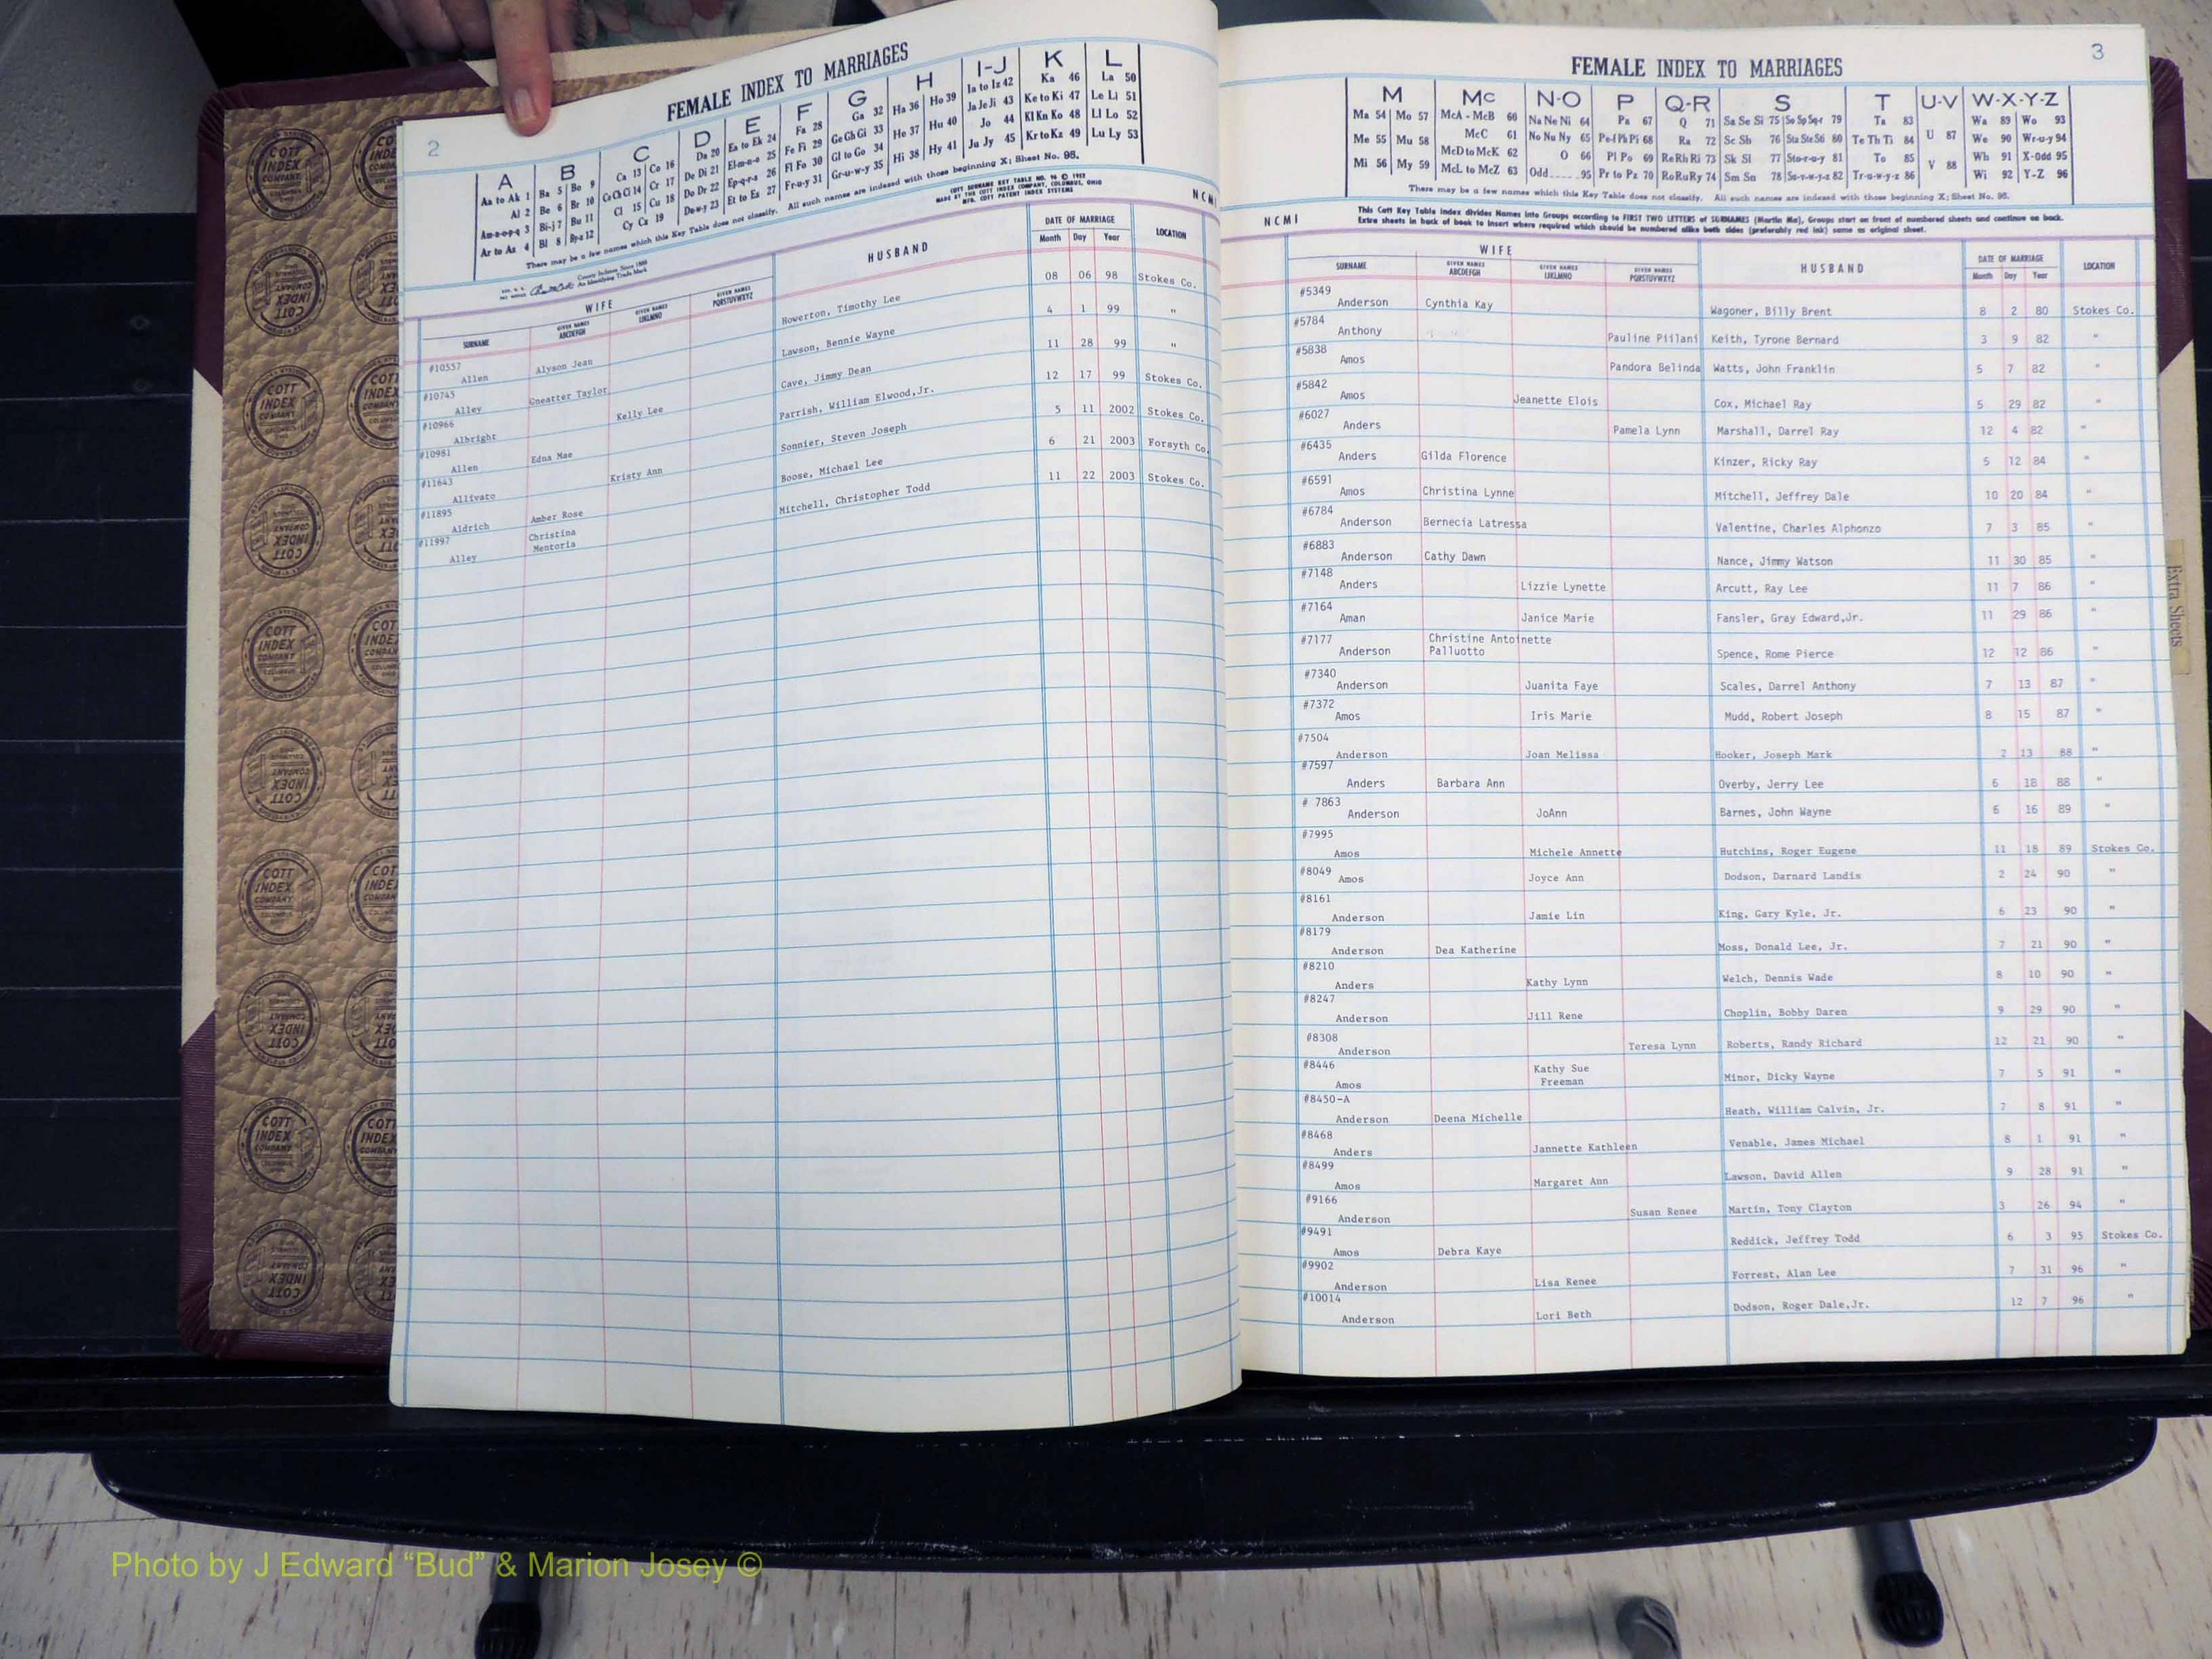 2
FEMALE INDEX TO MARRIAGES
A B C D E F G H I-J K L
Aa to Ak 1 Ba 5 Be 9 Ca 13 Co 16 Da 20 Ea to Ek 24 Fa 28 Ga 32 Ha 36 Ho 39 Ia to Iz 42 Ka 46 La 50
Al 2 Be 6 Br 10 Ce Ch Ci 14 Cr 17 De Di 21 El-m-n-o 25 Fe Fi 29 Ge Gh Gi 33 He 37 Hu 40 Ja Je Ji 43 Ke to Ki 47 Le Li 51
Am-n-o-p-q 3 Bi-j 7 Bu 11 Cl 15 Cu 18 Do Dr 22 Ep-q-r-s 26 Fl Fo 30 Gl to Go 34 Hi 38 Hy 41 Jo 44 Kl Kn Ko 48 Ll Lo 52
Ar to Az 4 Bl 8 By-z 12 Cy Cz 19 Du-w-y 23 Et to Ez 27 Fr-u-y 31 Gr-u-w-y 35 Ju Jy 45 Kr to Kz 49 Lu Ly 53
There may be a few names which this Key Table does not classify. All such names are indexed with those beginning X; Sheet No. 95.
COTT SURNAME KEY TABLE NO. 96 © 1952
MADE BY THE COTT INDEX COMPANY, COLUMBUS, OHIO
MFG. COTT PATENT INDEX SYSTEMS
NCMI
WIFE HUSBAND DATE OF MARRIAGE LOCATION
SURNAME GIVEN NAMES ABCDEFGH GIVEN NAMES IJKLMNO GIVEN NAMES PQRSTUVWXYZ Month Day Year
#10557
Allen Alyson Jean Howerton, Timothy Lee 08 06 98 Stokes Co.
#10745
Alley Oneatter Taylor Lawson, Bennie Wayne 4 1 99 "
#10966
Albright Kelly Lee Cave, Jimmy Dean 11 28 99 "
#10981
Allen Edna Mae Parrish, William Elwood,Jr. 12 17 99 Stokes Co.
#11643
Allivato Kristy Ann Sonnier, Steven Joseph 5 11 2002 Stokes Co.
#11895
Aldrich Amber Rose Boose, Michael Lee 6 21 2003 Forsyth Co.
#11997
Alley Christina Mentoria Mitchell, Christopher Todd 11 22 2003 Stokes Co.
3
FEMALE INDEX TO MARRIAGES
M Mc N-O P Q-R S T U-V W-X-Y-Z
Ma 54 Mo 57 McA - McB 60 Na Ne Ni 64 Pa 67 Q 71 Sa Se Si 75 So Sp Sq-r 79 Ta 83 U 87 Wa 89 Wo 93
Me 55 Mu 58 McC 61 No Nu Ny 65 Pe-f Ph Pi 68 Ra 72 Sc Sh 76 Sta Ste Sti 80 Te Th Ti 84 V 88 We 90 Wr-u-y 94
Mi 56 My 59 McD to McK 62 O 66 Pl Po 69 Re Rh Ri 73 Sk Sl 77 Sto-r-u-y 81 To 85 Wh 91 X-Odd 95
McL to McZ 63 Odd 95 Pr to Pz 70 Ro Ru Ry 74 Sm Sn 78 Su-v-w-y-z 82 Tr-u-w-y-z 86 Wi 92 Y-Z 96
There may be a few names which this Key Table does not classify. All such names are indexed with those beginning X; Sheet No. 95.
NCMI
This Cott Key Table Index divides Names into Groups according to FIRST TWO LETTERS of SURNAMES (Martin Ma), Groups start on front of numbered sheets and continue on back.
Extra sheets in back of book to insert where required which should be numbered alike both sides (preferably red ink) same as original sheet.
WIFE HUSBAND DATE OF MARRIAGE LOCATION
SURNAME GIVEN NAMES ABCDEFGH GIVEN NAMES IJKLMNO GIVEN NAMES PQRSTUVWXYZ Month Day Year
#5349
Anderson Cynthia Kay Wagoner, Billy Brent 8 2 80 Stokes Co.
#5784
Anthony Pauline Piilani Keith, Tyrone Bernard 3 9 82 "
#5838
Amos Pandora Belinda Watts, John Franklin 5 7 82 "
#5842
Amos Jeanette Elois Cox, Michael Ray 5 29 82 "
#6027
Anders Pamela Lynn Marshall, Darrel Ray 12 4 82 "
#6435
Anders Gilda Florence Kinzer, Ricky Ray 5 12 84 "
#6591
Amos Christina Lynne Mitchell, Jeffrey Dale 10 20 84 "
#6784
Anderson Bernecia Latressa Valentine, Charles Alphonzo 7 3 85 "
#6883
Anderson Cathy Dawn Nance, Jimmy Watson 11 30 85 "
#7148
Anders Lizzie Lynette Arcutt, Ray Lee 11 7 86 "
#7164
Aman Janice Marie Fansler, Gray Edward,Jr. 11 29 86 "
#7177
Anderson Christine Antoinette Palluotto Spence, Rome Pierce 12 12 86 "
#7340
Anderson Juanita Faye Scales, Darrel Anthony 7 13 87 "
#7372
Amos Iris Marie Mudd, Robert Joseph 8 15 87 "
#7504
Anderson Joan Melissa Hooker, Joseph Mark 2 13 88 "
#7597
Anders Barbara Ann Overby, Jerry Lee 6 18 88 "
# 7863
Anderson JoAnn Barnes, John Wayne 6 16 89 "
#7995
Amos Michele Annette Hutchins, Roger Eugene 11 18 89 Stokes Co.
#8049
Amos Joyce Ann Dodson, Darnard Landis 2 24 90 "
#8161
Anderson Jamie Lin King, Gary Kyle, Jr. 6 23 90 "
#8179
Anderson Dea Katherine Moss, Donald Lee, Jr. 7 21 90 "
#8210
Anders Kathy Lynn Welch, Dennis Wade 8 10 90 "
#8247
Anderson Jill Rene Choplin, Bobby Daren 9 29 90 "
#8308
Anderson Teresa Lynn Roberts, Randy Richard 12 21 90 "
#8446
Amos Kathy Sue Freeman Minor, Dicky Wayne 7 5 91 "
#8450-A
Anderson Deena Michelle Heath, William Calvin, Jr. 7 8 91 "
#8468
Anders Jannette Kathleen Venable, James Michael 8 1 91 "
#8499
Amos Margaret Ann Lawson, David Allen 9 28 91 "
#9166
Anderson Susan Renee Martin, Tony Clayton 3 26 94 "
#9491
Amos Debra Kaye Reddick, Jeffrey Todd 6 3 95 Stokes Co.
#9902
Anderson Lisa Renee Forrest, Alan Lee 7 31 96 "
#10014
Anderson Lori Beth Dodson, Roger Dale,Jr. 12 7 96 "
Extra Sheets
COTT INDEX COMPANY
Photo by J Edward “Bud” & Marion Josey ©